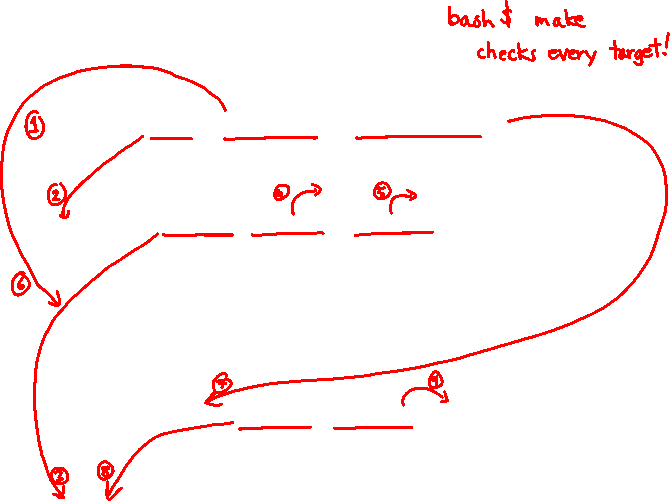 bash$ make
checks every target!
1
2
6
5
6
7
9
2
8